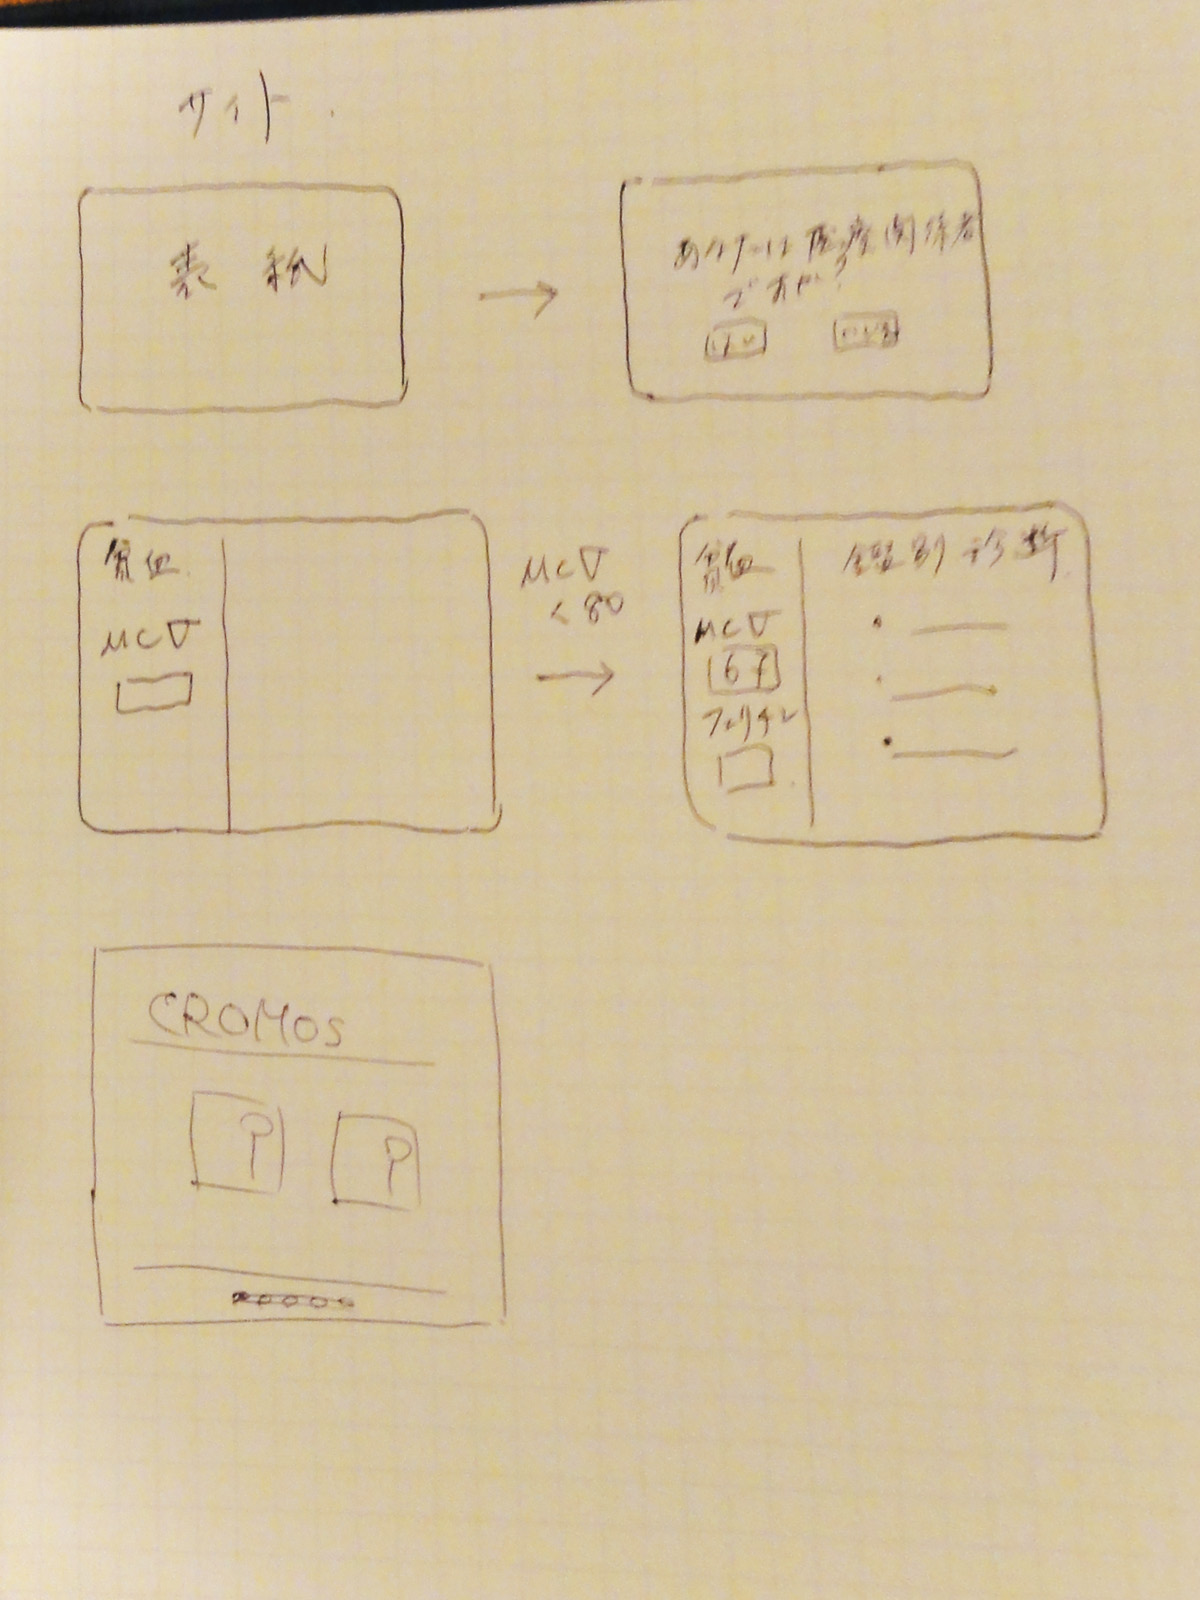 サイト
表紙
あなたは医療関係者
ですか?
はい いいえ
貧血
MCV
MCV
< 80
貧血
MCV
67
フェリチン
鑑別診断
CROMOS